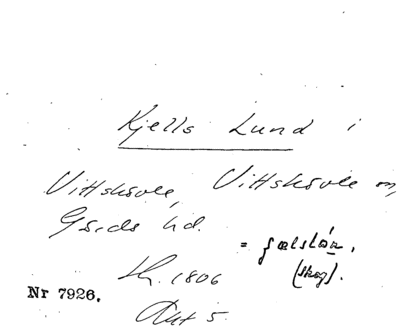 Kjells Lund i
Vittskövle, Vittskövle sn,
Gärds hd.
= fælstan,
(skog).
Sk. 1806
Akt 5.
Nr 7926.